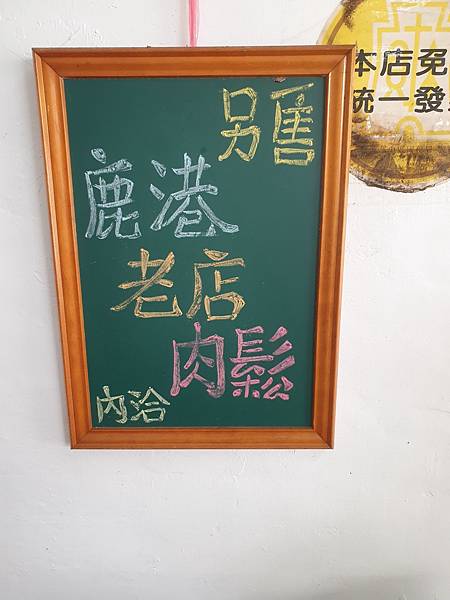 另售
鹿港
老店
肉鬆
內洽
本店免
統一發